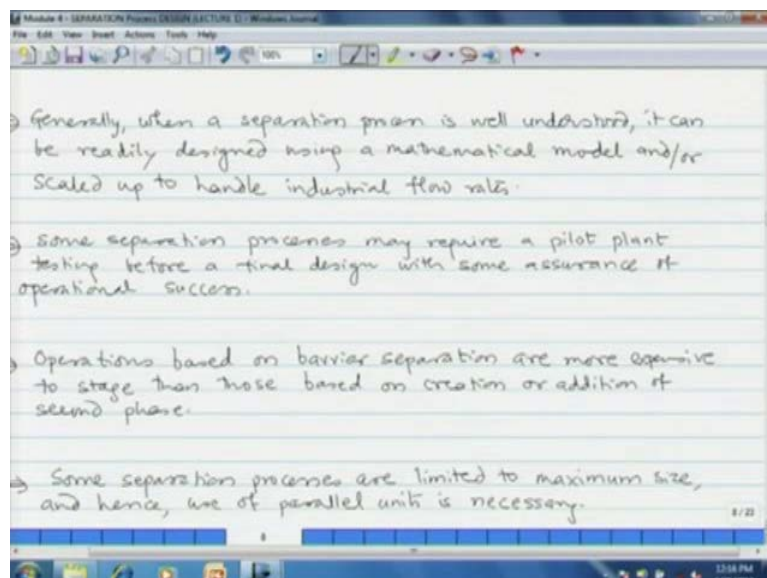 Module 4 - SEPARATION Process DESIGN (LECTURE 1) - Windows Journal
File Edit View Insert Actions Tools Help
100%
Generally, when a separation process is well understood, it can
be readily designed using a mathematical model and/or
scaled up to handle industrial flow rates.
Some separation processes may require a pilot plant
testing before a final design with some assurance of
operational success.
Operations based on barrier separation are more expensive
to stage than those based on creation or addition of
second phase.
→ Some separation processes are limited to maximum size,
and hence, use of parallel units is necessary.
8/22
8
12:16 PM